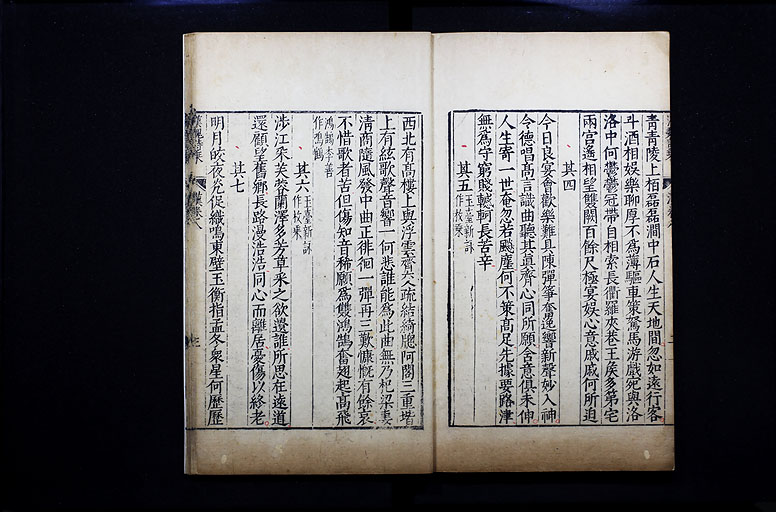 青青陵上栢磊磊澗中石人生天地間忽如遠行客
斗酒相娛樂聊厚不爲薄驅車策駑馬游戲宛與洛
洛中何鬱鬱冠帶自相索長衢羅夾巷王矦多第宅
兩宮遙相望雙闕百餘尺極宴娛心意戚戚何所迫
其四
今日良宴會歡樂難具陳彈箏奮逸響新聲妙入神
令德唱高言識曲聽其眞齊心同所願含意俱未伸
人生寄一世奄忽若飈塵何不策高足先據要路津
無爲守窮賤轗軻長苦辛
其五玉臺新詠
作枚乗
西北有高樓上與浮雲齊交疏結綺牕阿閣三重堦
上有絃歌聲音響一何悲誰能爲此曲無乃杞梁妻
清商隨風發中曲正徘徊一彈再三歎慷慨有餘哀
不惜歌者苦但傷知音稀願爲雙鴻鵠奮翅起高飛
鴻鵠李善
作鳴鶴
其六玉臺新詠
作枚乗
涉江采芙蓉蘭澤多芳草采之欲遺誰所思在遠道
還顧望舊鄉長路漫浩浩同心而離居憂傷以終老
其七
明月皎夜光促織鳴東壁玉衡指孟冬衆星何歷歷